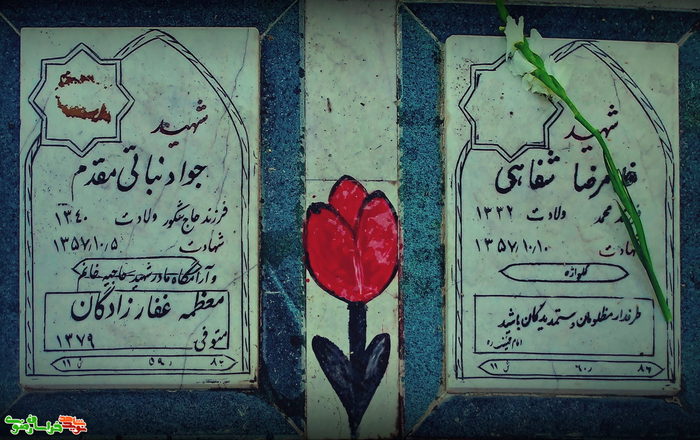 شهید
جواد نباتی مقدم
فرزند حاج شکور ولادت ۱۳۴۰
شهادت ۱۳۵۷/۱۰/۵
و آرامگاه مادر شهید حاجیه خانم
معظمه غفارزادگان
متوفی ۱۳۷۹
۸۶ ر ۵۹ ق ۱۱
شهید
غلامرضا شفاهی
فرزند محمد ولادت ۱۳۲۲
شهادت ۱۳۵۷/۱۰/۱۰
طرفدار مظلومان و ستمدیدگان باشید
امام خمینی ره
۸۶ ر ۶۰ ق ۱۱